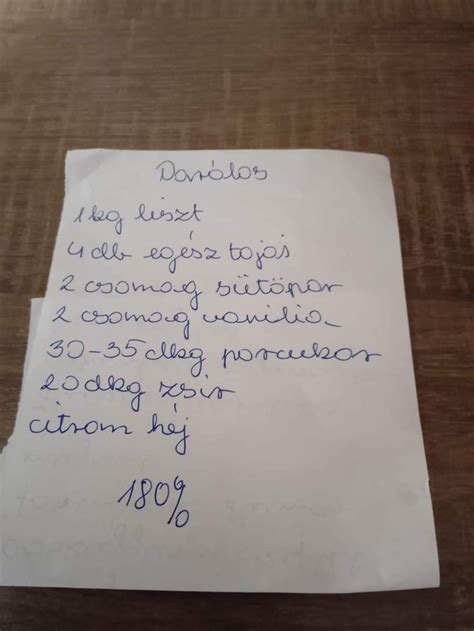 Darálos
1 kg liszt
4 db egész tojás
2 csomag sütöpor
2 csomag vanilia
30-35 dkg porcukor
20 dkg zsir
citrom héj
180%